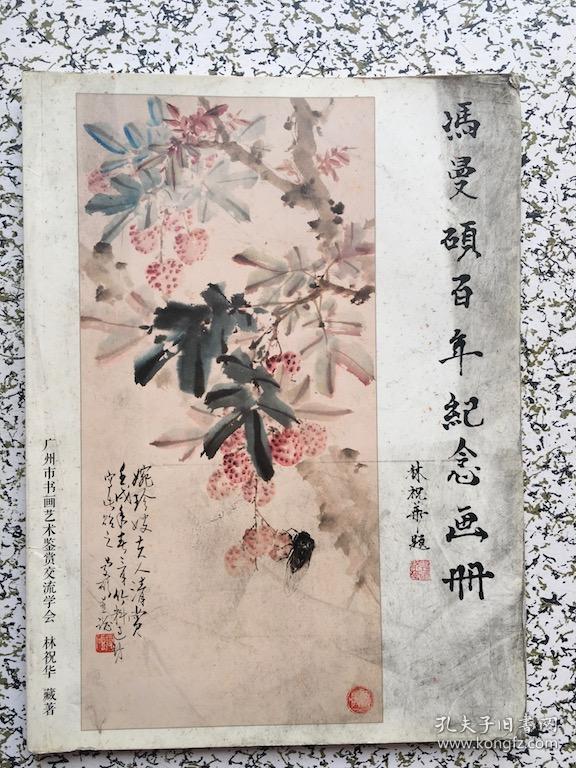 馮曼碩百年紀念画册
林祝華題
婉珍嫂夫人清賞
广州市书画艺术鉴赏交流学会 林祝华 藏著
孔夫子旧书网
www.kongfz.com